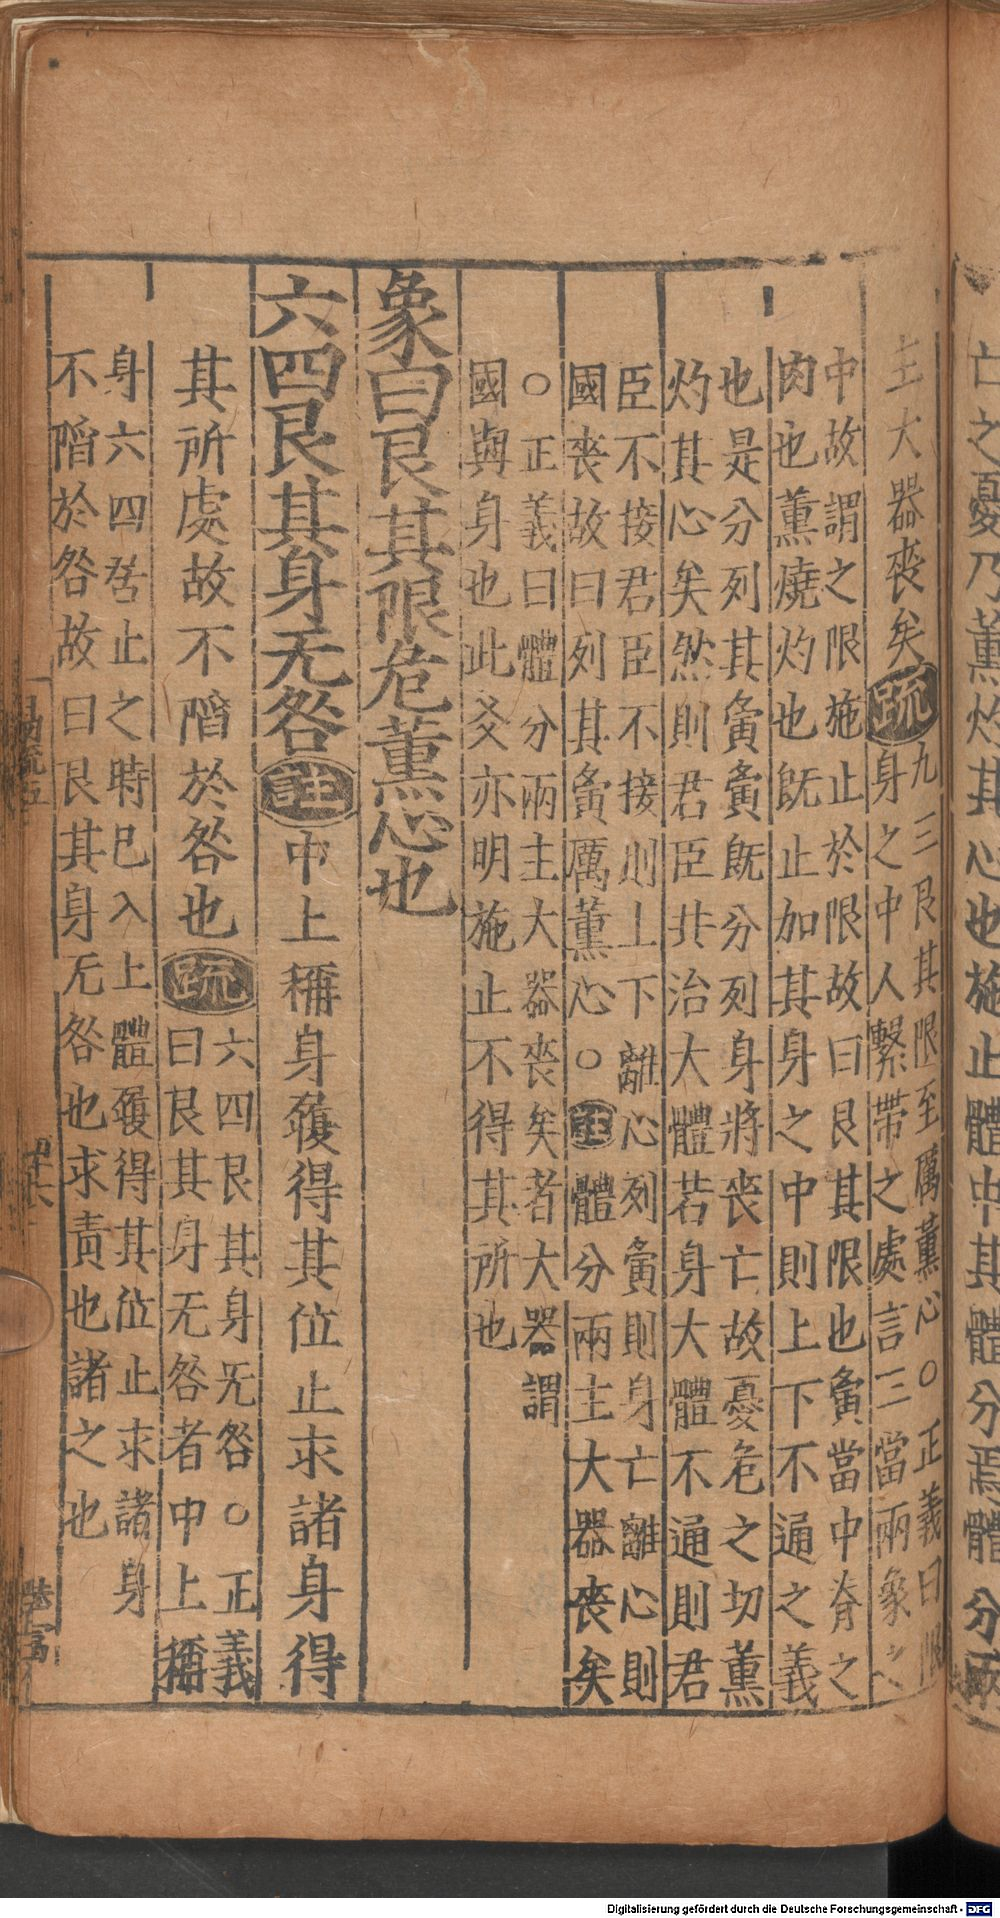 亡之憂乃薰灼其心也施止體中其體分焉體分兩
主大器喪矣疏九三艮其限至厲薰心○正義曰限
身之中人繫帶之處言三當兩象之
中故謂之限施止於限故曰艮其限也夤當中脊之
肉也薰燒灼也既止加其身之中則上下不通之義
也是分列其夤夤既分列身將喪亡故憂危之切薰
灼其心矣然則君臣共治大體若身大體不通則君
臣不接君臣不接則上下離心列夤則身亡離心則
國喪故曰列其夤厲薰心○註體分兩主大器喪矣
○正義曰體分兩主大器喪矣者大器謂
國與身也此爻亦明施止不得其所也
象曰艮其限危薰心也
六四艮其身无咎註中上稱身履得其位止求諸身得
其所處故不陷於咎也疏六四艮其身无咎○正義
曰艮其身无咎者中上稱
身六四居止之時已入上體履得其位止求諸身
不陷於咎故曰艮其身无咎也求責也諸之也
Digitalisierung gefördert durch die Deutsche Forschungsgemeinschaft - DFG